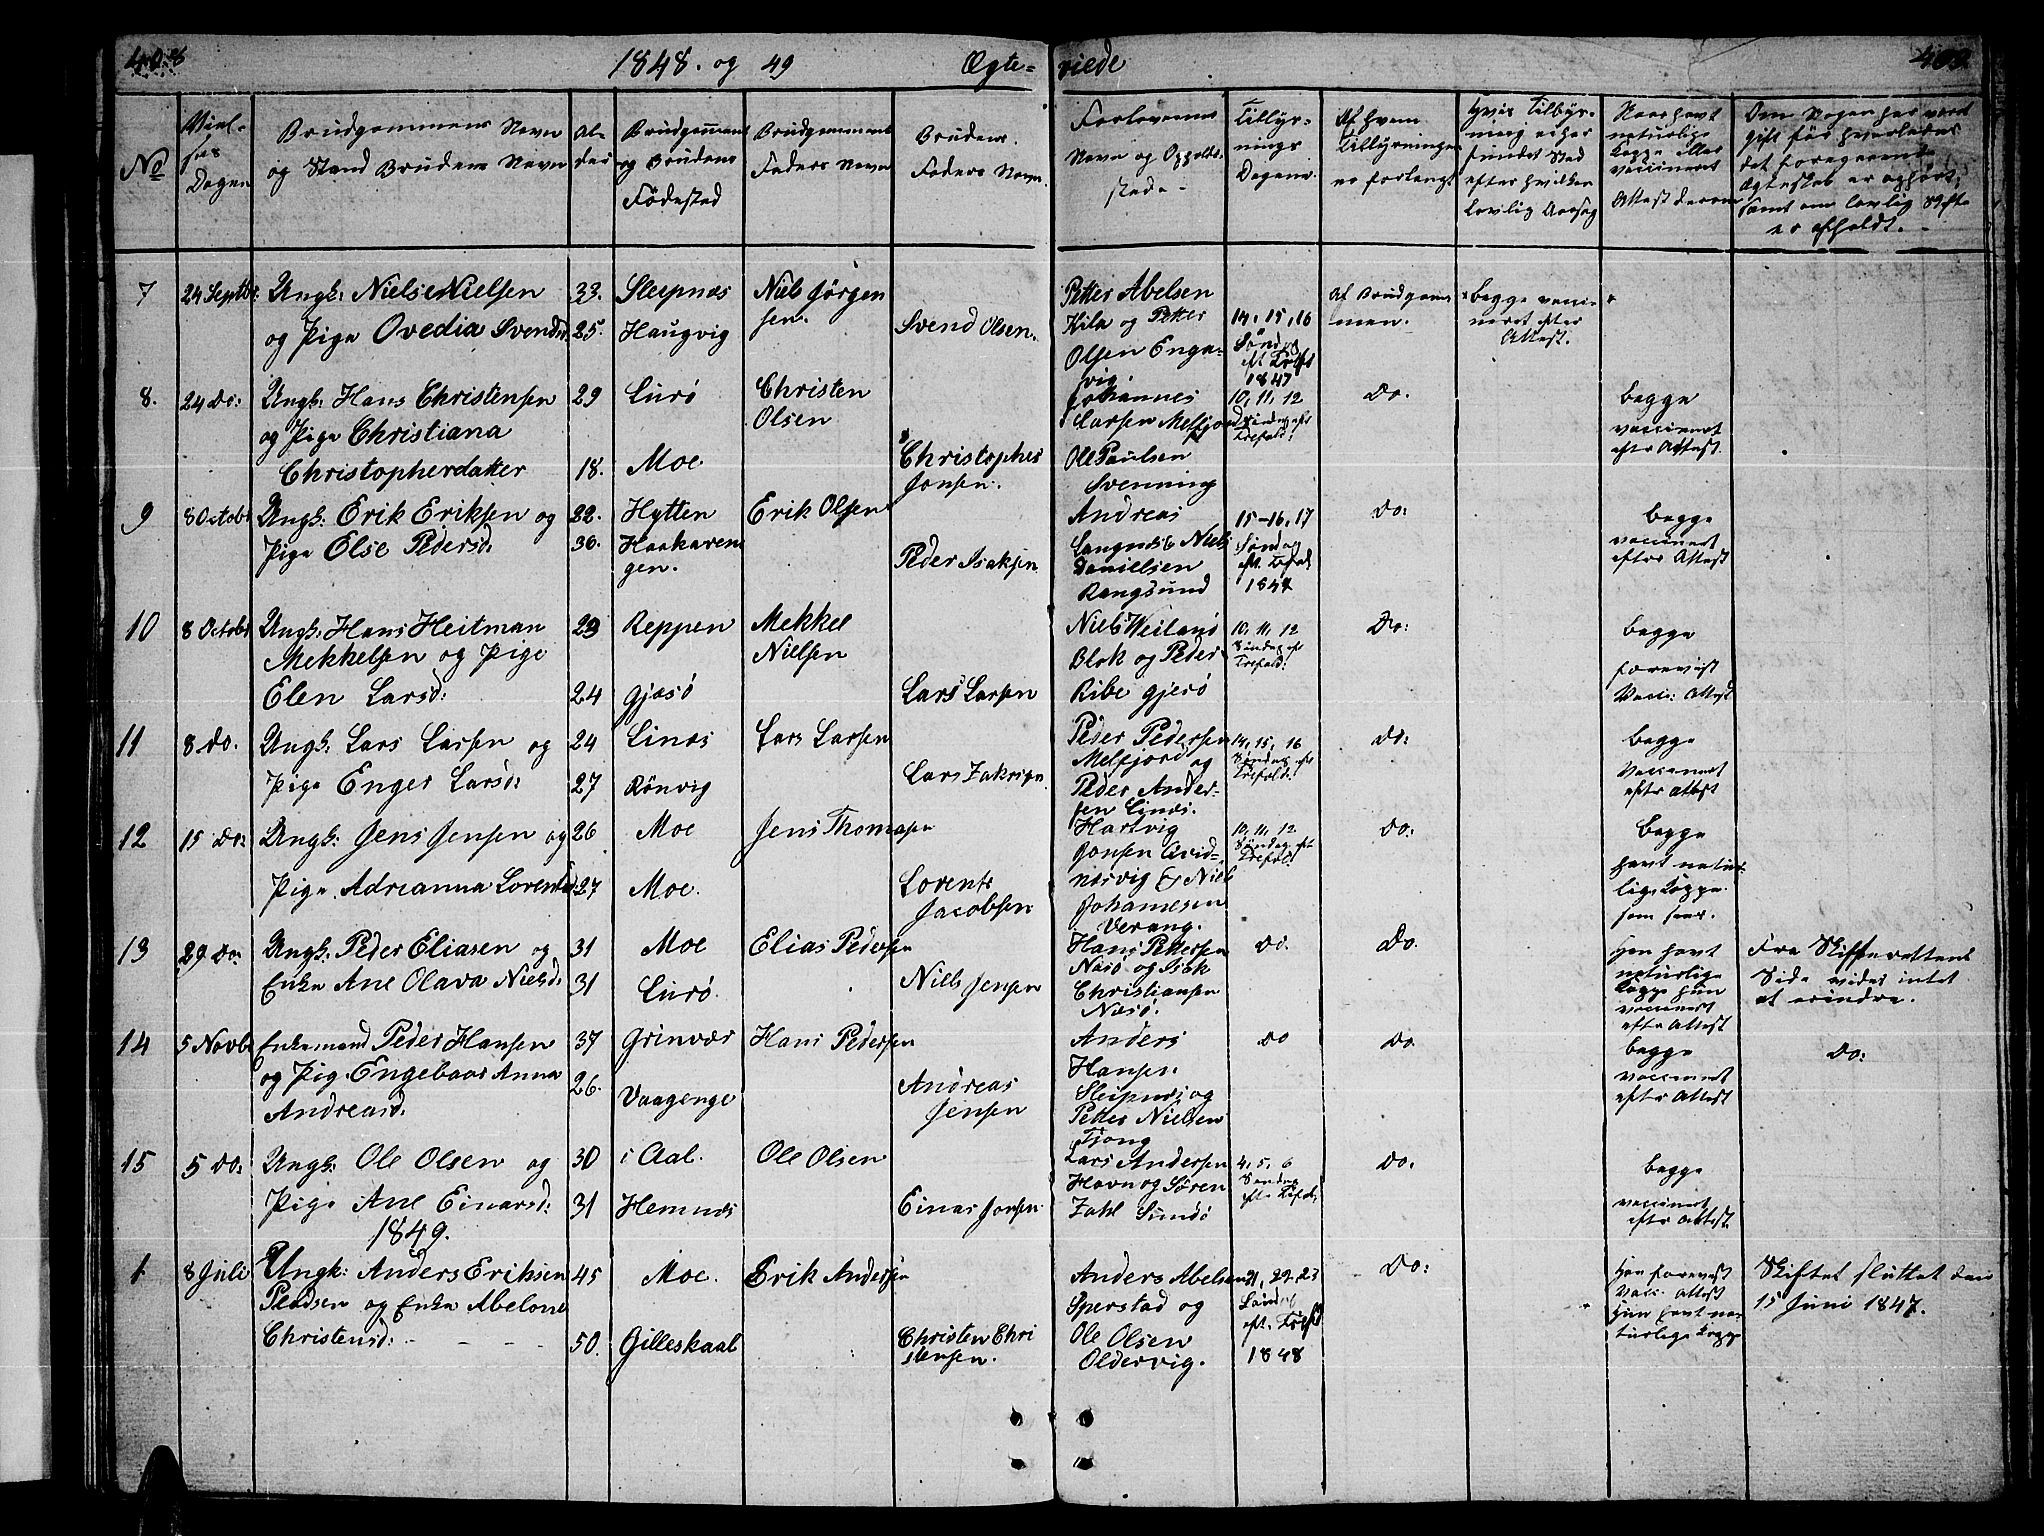 408 1848. og 49 Ægte- viede 409
No
Viel-
ses
Dagen
Brudgommens Navn
og Stand Brudens Navn
Al-
der
Brudgommens
og Brudens
Födested
Brudgommens
Faders Navn
Brudens
Faders Navn
Forlovernes
Navn og Opholds
sted
Tillys-
nings
Dagene
Af hvem
Tillysningen
er forlangt
Hvis Tillys-
ning ei har
fundet Sted
efter hvilken
Lovlig Aarsag
Naar havt
naturlige
Kopper eller
vaccineret
Attest derom
Om Nogen har været
gift før hvorledes
det foregaaende
Ægteskab er ophørt,
samt om lovlig Skifte
er afholdt.
7 24 Septbr: Ungk: Niels Nielsen 33. Sleipnæs Niels Jörgen
sen.
og Pige Ovedia Svendsd 25. Haugvig Svend Olsen.
Petter Abelsen
Kila og Petter
Olsen Enga-
vig.
14, 15, 16
Sönd:
eft Trefold
1847
Af Brudgom
men.
Begge vacci-
neret efter
Attest.
8. 24 Do: Ungk: Hans Christensen 29 Lurö Christen
Olsen
og Pige Christiana
Christopherdatter 18. Moe Christopher
Jonsen.
Johannes
Larsen Melfjord
Ole Paulsen
Svenning
10, 11, 12
Söndag eft
Trefold:
Do.
begge
vaccineret
efter Attest.
9 8 Octobr Ungk: Erik Eriksen og 22. Hytten Erik Olsen
Pige Else Pedersd: 30. Haakaven
gen. Peder Isaksen
Andreas
Langnæs Niels
Danielsen
Rangsund
15-16, 17
Söndag
eft. Trefold
1847
Do:
begge
vaccineret
efter Attest
10 8 Octobr Ungk: Hans Heitman 23 Reppen Mekkel
Nielsen
Mekkelsen og Pige
Elen Larsd: 24 Gjæsö Lars Larsen
Niels Weilans
Blok og Peder
Ribe Gjerö
10, 11, 12
Söndag eft
Trefold:
Do:
begge
forevist
Vacc: Attest
11 8 Do. Ungk: Lars Larsen og 24 Linæs Lars Larsen
Pige Enger Larsd: 27 Rönvig Lars Zakrisen
Peder Pedersen
Melfjord og
Peder Ander-
sen Linæs.
14, 15, 16
Söndag eft
Trefold:
Do:
begge
Vaccineret
efter Attest
12 15 Do: Ungk: Jens Jensen og 26 Moe Jens Thomasen
Pige Adreanna Lorentsd 27 Moe. Lorents
Jacobsen
Hartvig
Jonsen Qvid-
næsvig & Niels
Johannesen
Verang.
10, 11, 12
Söndag eft
Trefold
Do:
begge
havt natur
lige Kopper
som sees.
13 29 Do: Ungk: Peder Eliasen og 31 Moe Elias Pedersen
Enke Ane Olava Nielsd: 31 Lurö. Niels Jensen
Hans Pettersen
Næsö og Isak
Christiansen
Næsö.
Do. Do.
Han havt
naturlige
Kopper hun
vaccineret
efter Attest
Fra Skifterettens
Side vides intet
at erindre.
14 5 Novbr Enkemand Peder Hansen 37 Grinvær Hans Pedersen
og Pig. Engebaar Anna 26. Vaagenge Andreas
Jensen
Andreasd:
Anders
Hansen
Sleipnæs og
Petter Nielsen
Tjong
Do Do
begge
vaccineret
efter Attest
Do:
15 5 Do: Ungk: Ole Olsen og 30 i Aal. Ole Olsen
Pige Ane Einarsd: 31 Hemnæs Einar Jonsen
Lars Andersen
Havn og Sören
Zahl Sundö
4, 5, 6
Söndag
eft. Trefold
Do.
begge
vaccineret
efter Attest
1849.
1 8 Juli Ungk: Anders Eriksen 45 Moe. Erik Andersen
og Enke Abelone
Christensd: 50. Gilleskaal Christen Chri
stensen.
Anders Abelsen
Sperstad og
Ole Olsen
Oldervig.
21, 22, 23
Söndag
eft. Trefold
1848
Do:
Han forevist
Vacc. Attest
Hun havt na-
turlige Kopper
Skiftet sluttet den
15 Juni 1847.